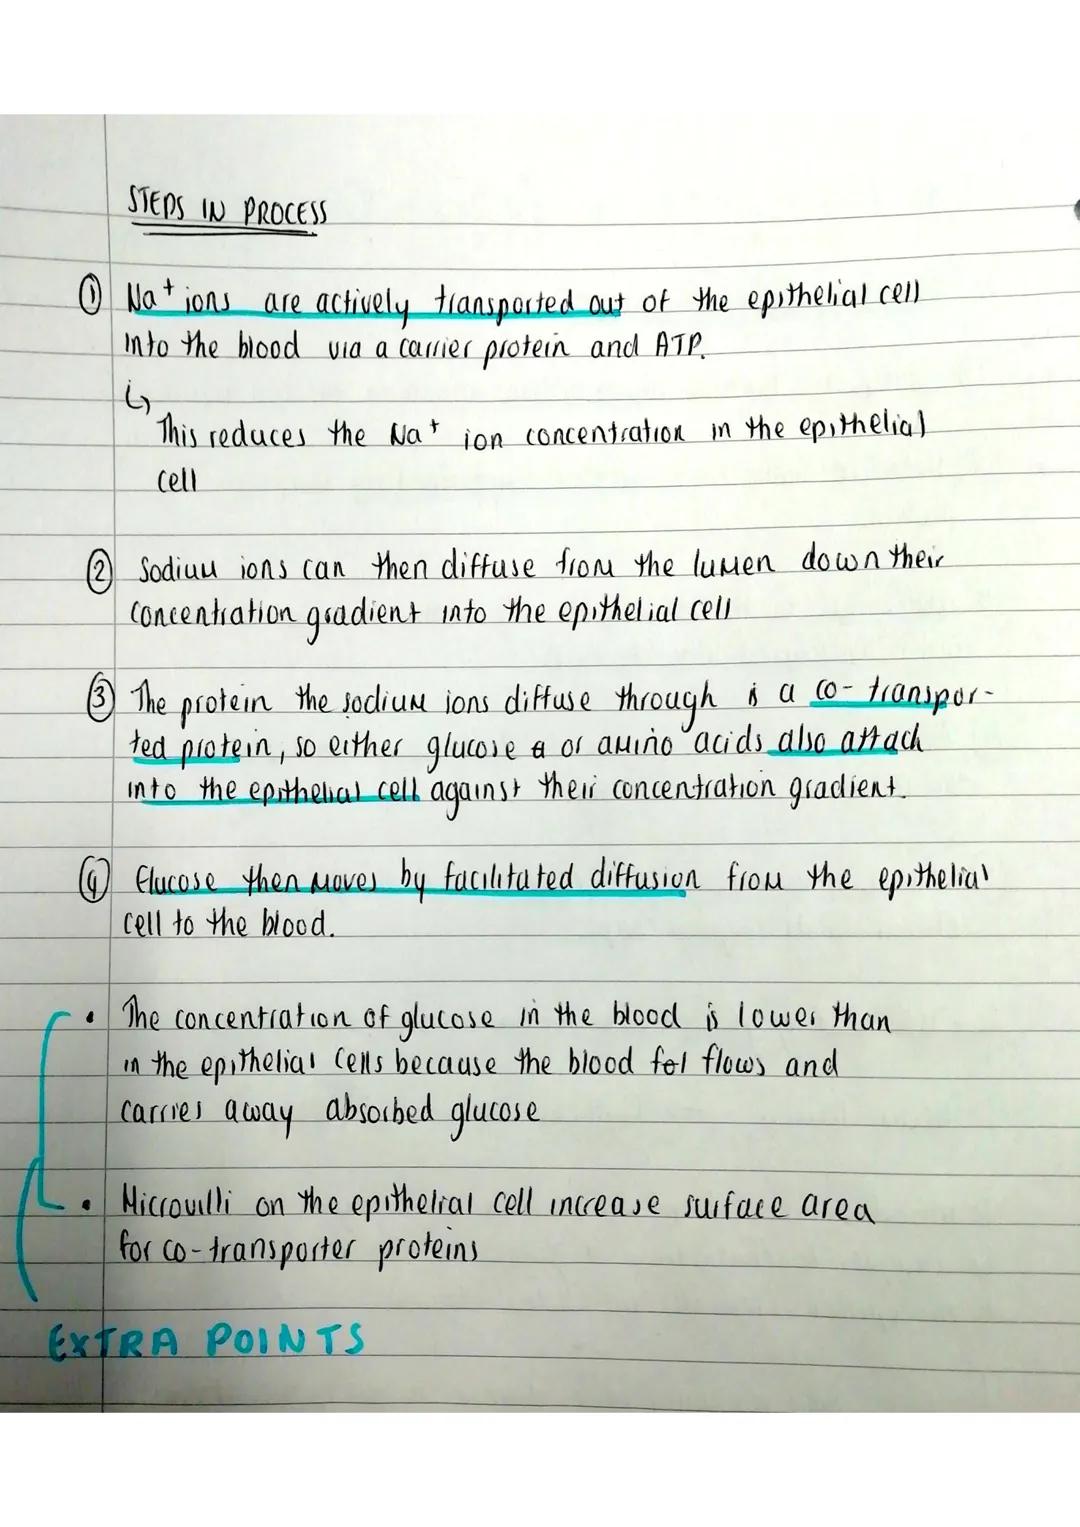 STEPS IN PROCESS
① Na⁺ ions are actively transported out of the epithelial cell
into the blood via a carrier protein and ATP.
↳
This reduces the Na⁺ ion concentration in the epithelial
cell
② Sodium ions can then diffuse from the lumen down their
concentration gradient into the epithelial cell
③ The protein the sodium ions diffuse through is a co-transpor-
ted protein, so either glucose or amino acids also attach
into the epithelial cell against their concentration gradient.
④ Glucose then moves by facilitated diffusion from the epithelial
cell to the blood.
• The concentration of glucose in the blood is lower than
in the epithelial cells because the blood flows and
carries away absorbed glucose
• Microvilli on the epithelial cell increase surface area
for co-transporter proteins
EXTRA POINTS